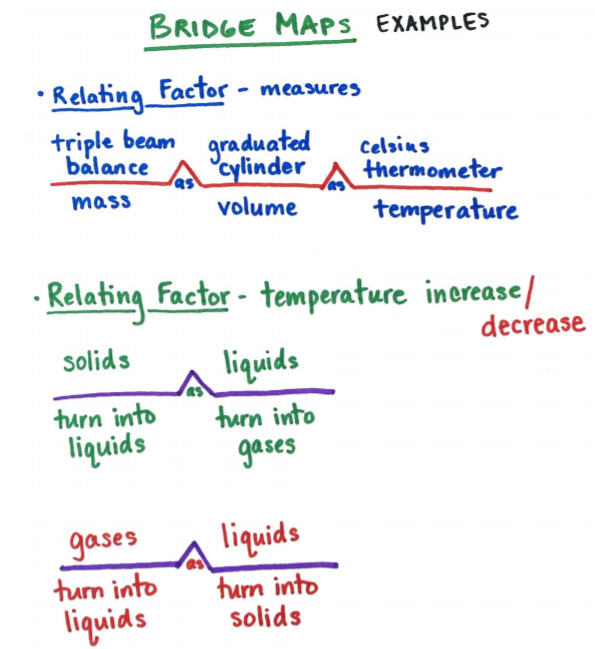 BRIDGE MAPS EXAMPLES
• Relating Factor - measures
triple beam balance as graduated cylinder as celsius thermometer
mass volume temperature
• Relating Factor - temperature increase/
decrease
solids as liquids
turn into turn into
liquids gases
gases as liquids
turn into turn into
liquids solids